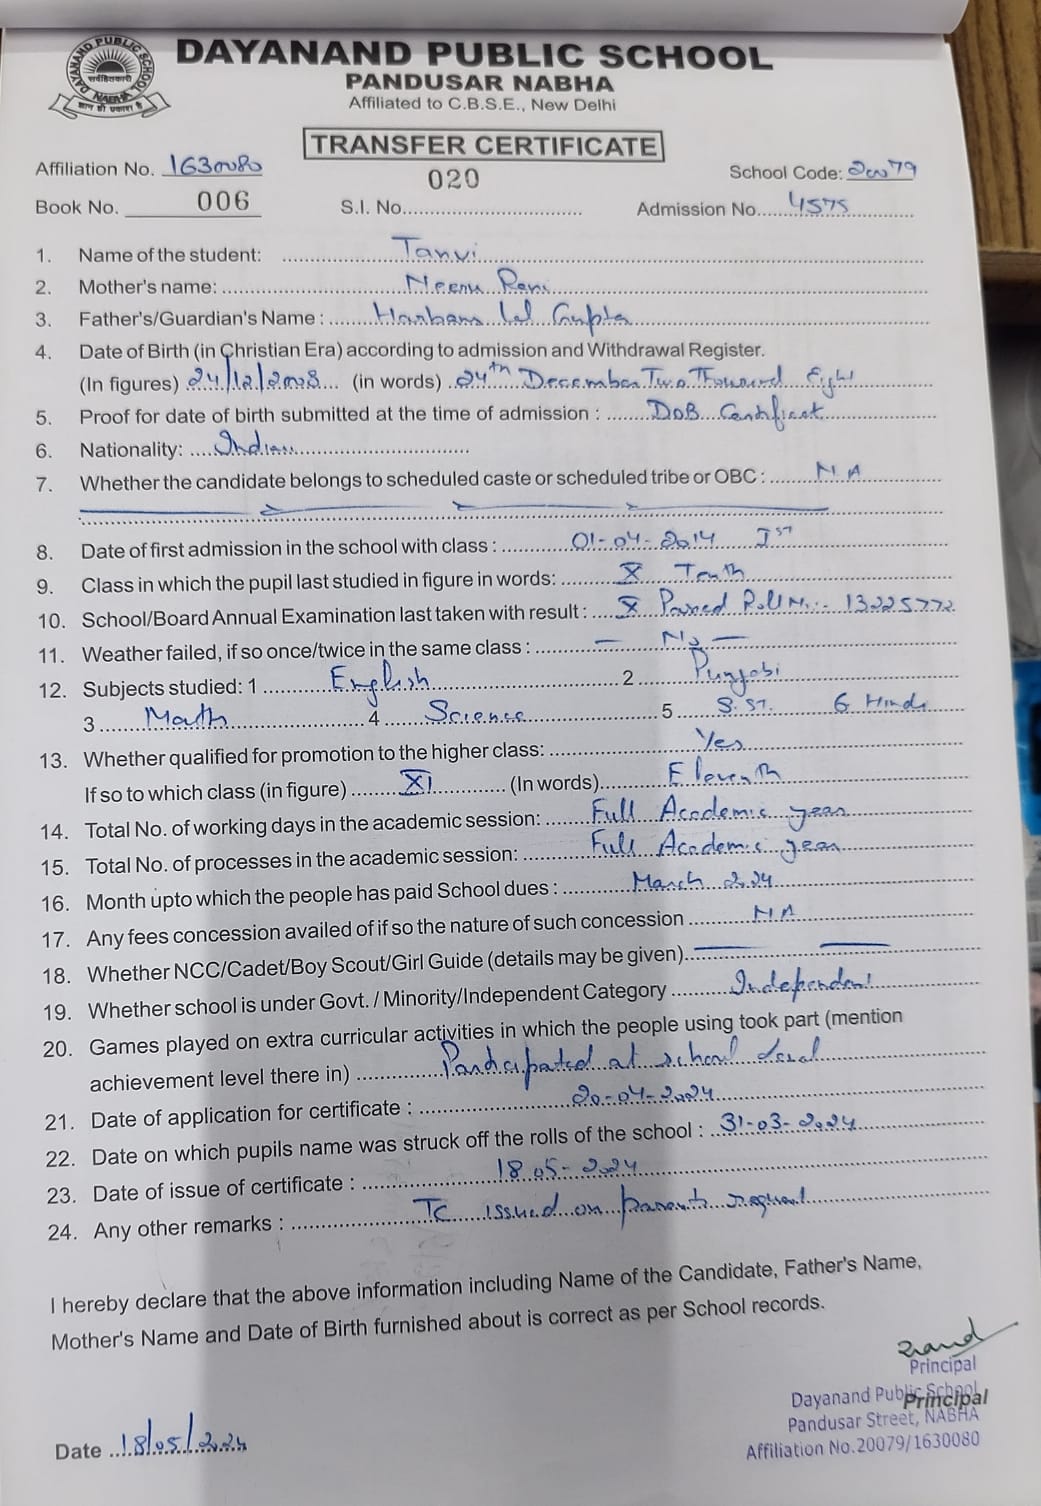 DAYANAND PUBLIC SCHOOL
PANDUSAR NABHA
Affiliated to C.B.S.E., New Delhi
TRANSFER CERTIFICATE
Affiliation No. 1630080
020
School Code: 20079
Book No. 006
S.I. No.
Admission No. 4575
1. Name of the student: Tanvi
2. Mother's name: Neenu Rani
3. Father's/Guardian's Name : Harbans Lal Gupta
4. Date of Birth (in Christian Era) according to admission and Withdrawal Register.
(In figures) 24/12/2008 (in words) 24th December Two Thousand Eight
5. Proof for date of birth submitted at the time of admission : DOB Certificat
6. Nationality: Indian
7. Whether the candidate belongs to scheduled caste or scheduled tribe or OBC : N A
8. Date of first admission in the school with class : 01-04-2014 Ist
9. Class in which the pupil last studied in figure in words: X Tenth
10. School/Board Annual Examination last taken with result : X Passed Roll No:- 13225772
11. Weather failed, if so once/twice in the same class : — No —
12. Subjects studied: 1 English 2 Punjabi
3 Math 4 Science 5 S.St. 6 Hindi
13. Whether qualified for promotion to the higher class: Yes
If so to which class (in figure) XI (In words) Eleventh
14. Total No. of working days in the academic session: Full Academic year
15. Total No. of processes in the academic session: Full Academic year
16. Month upto which the people has paid School dues : March 2024
17. Any fees concession availed of if so the nature of such concession N A
18. Whether NCC/Cadet/Boy Scout/Girl Guide (details may be given)
19. Whether school is under Govt. / Minority/Independent Category Independent
20. Games played on extra curricular activities in which the people using took part (mention
achievement level there in) Participated at school level
21. Date of application for certificate : 20-04-2024
22. Date on which pupils name was struck off the rolls of the school : 31-03-2024
23. Date of issue of certificate : 18.05-2024
24. Any other remarks : TC issued on parents request
I hereby declare that the above information including Name of the Candidate, Father's Name,
Mother's Name and Date of Birth furnished about is correct as per School records.
Principal
Dayanand Public School
Principal
Pandusar Street, NABHA
Affiliation No.20079/1630080
Date 18/05/2024